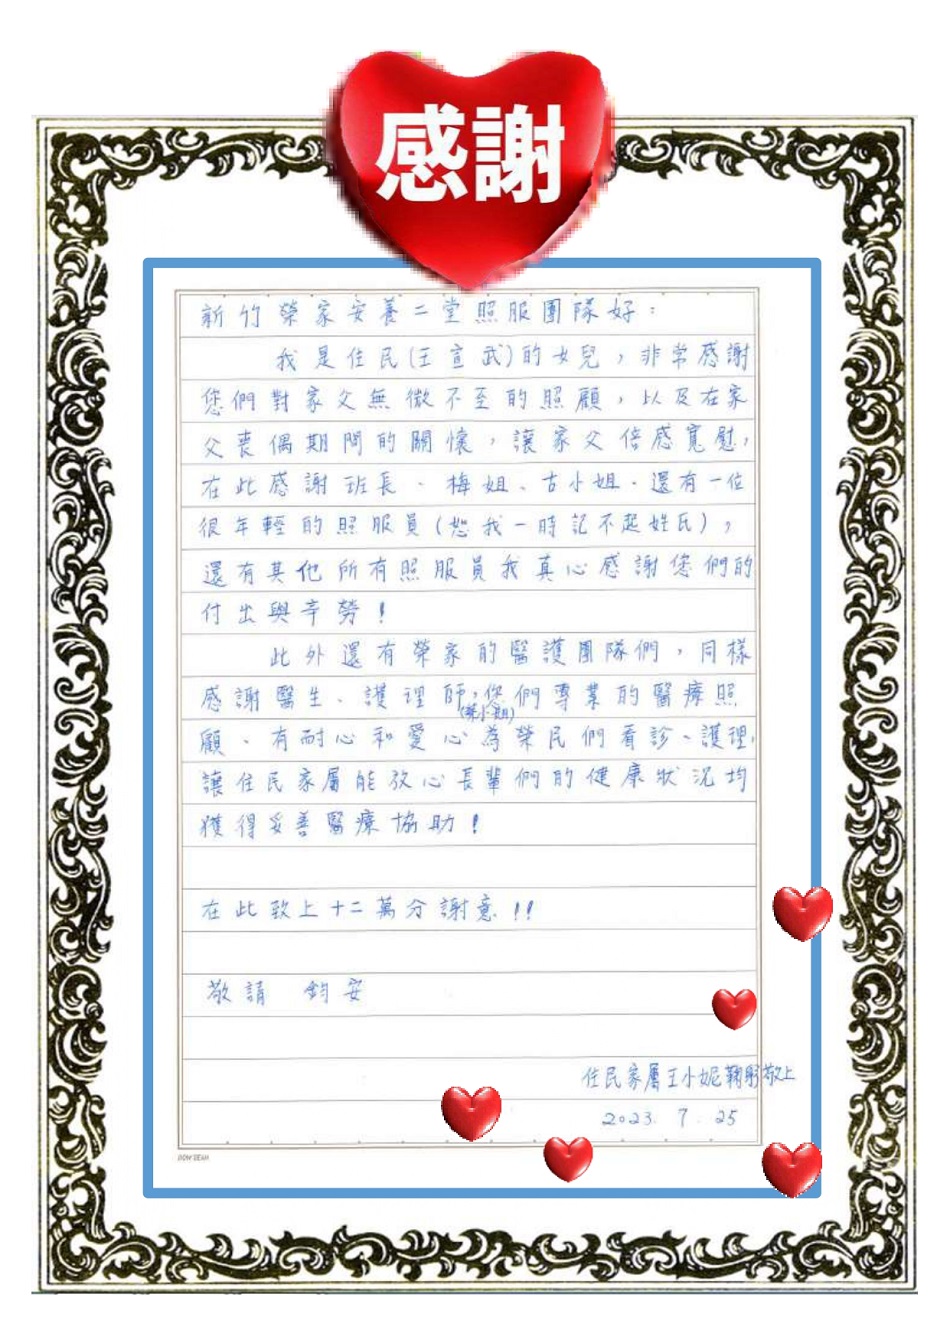 感謝
新竹榮家安養二堂照服團隊好：
我是住民(王宣武)的女兒，非常感謝
您們對家父無微不至的照顧，以及在家
父喪偶期間的關懷，讓家父倍感寬慰，
在此感謝班長、梅姐、古小姐、還有一位
很年輕的照服員(恕我一時記不起姓氏)，
還有其他所有照服員我真心感謝您們的
付出與辛勞！
此外還有榮家的醫護團隊們，同樣
感謝醫生、護理師，您們專業的醫療照
顧、有耐心和愛心為榮民們看診、護理，
讓住民家屬能放心長輩們的健康狀況均
獲得妥善醫療協助！
在此致上十二萬分謝意！！
敬請 鈞安
住民家屬王小妮鞠躬敬上
2023. 7. 25